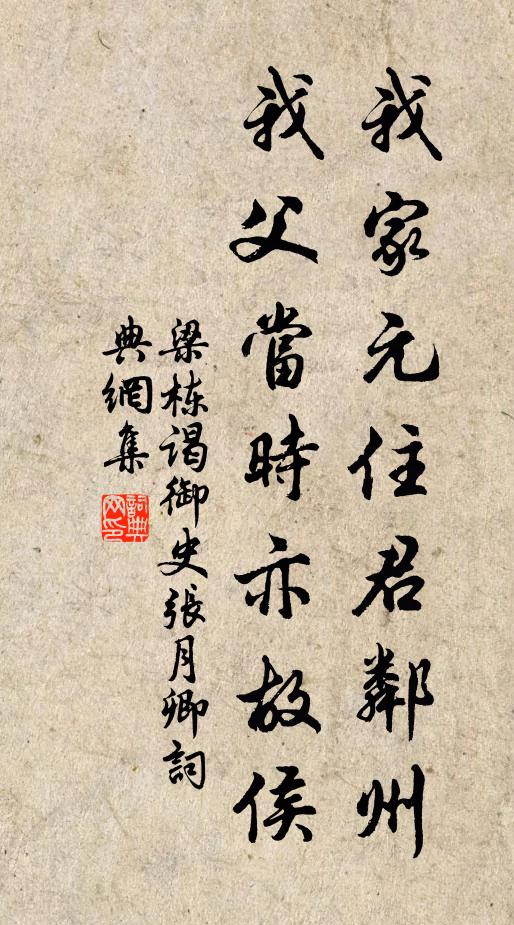 我家元住君鄰州
我父當時亦故侯
梁栋谒御史張月卿詞
典網集
詞典網印